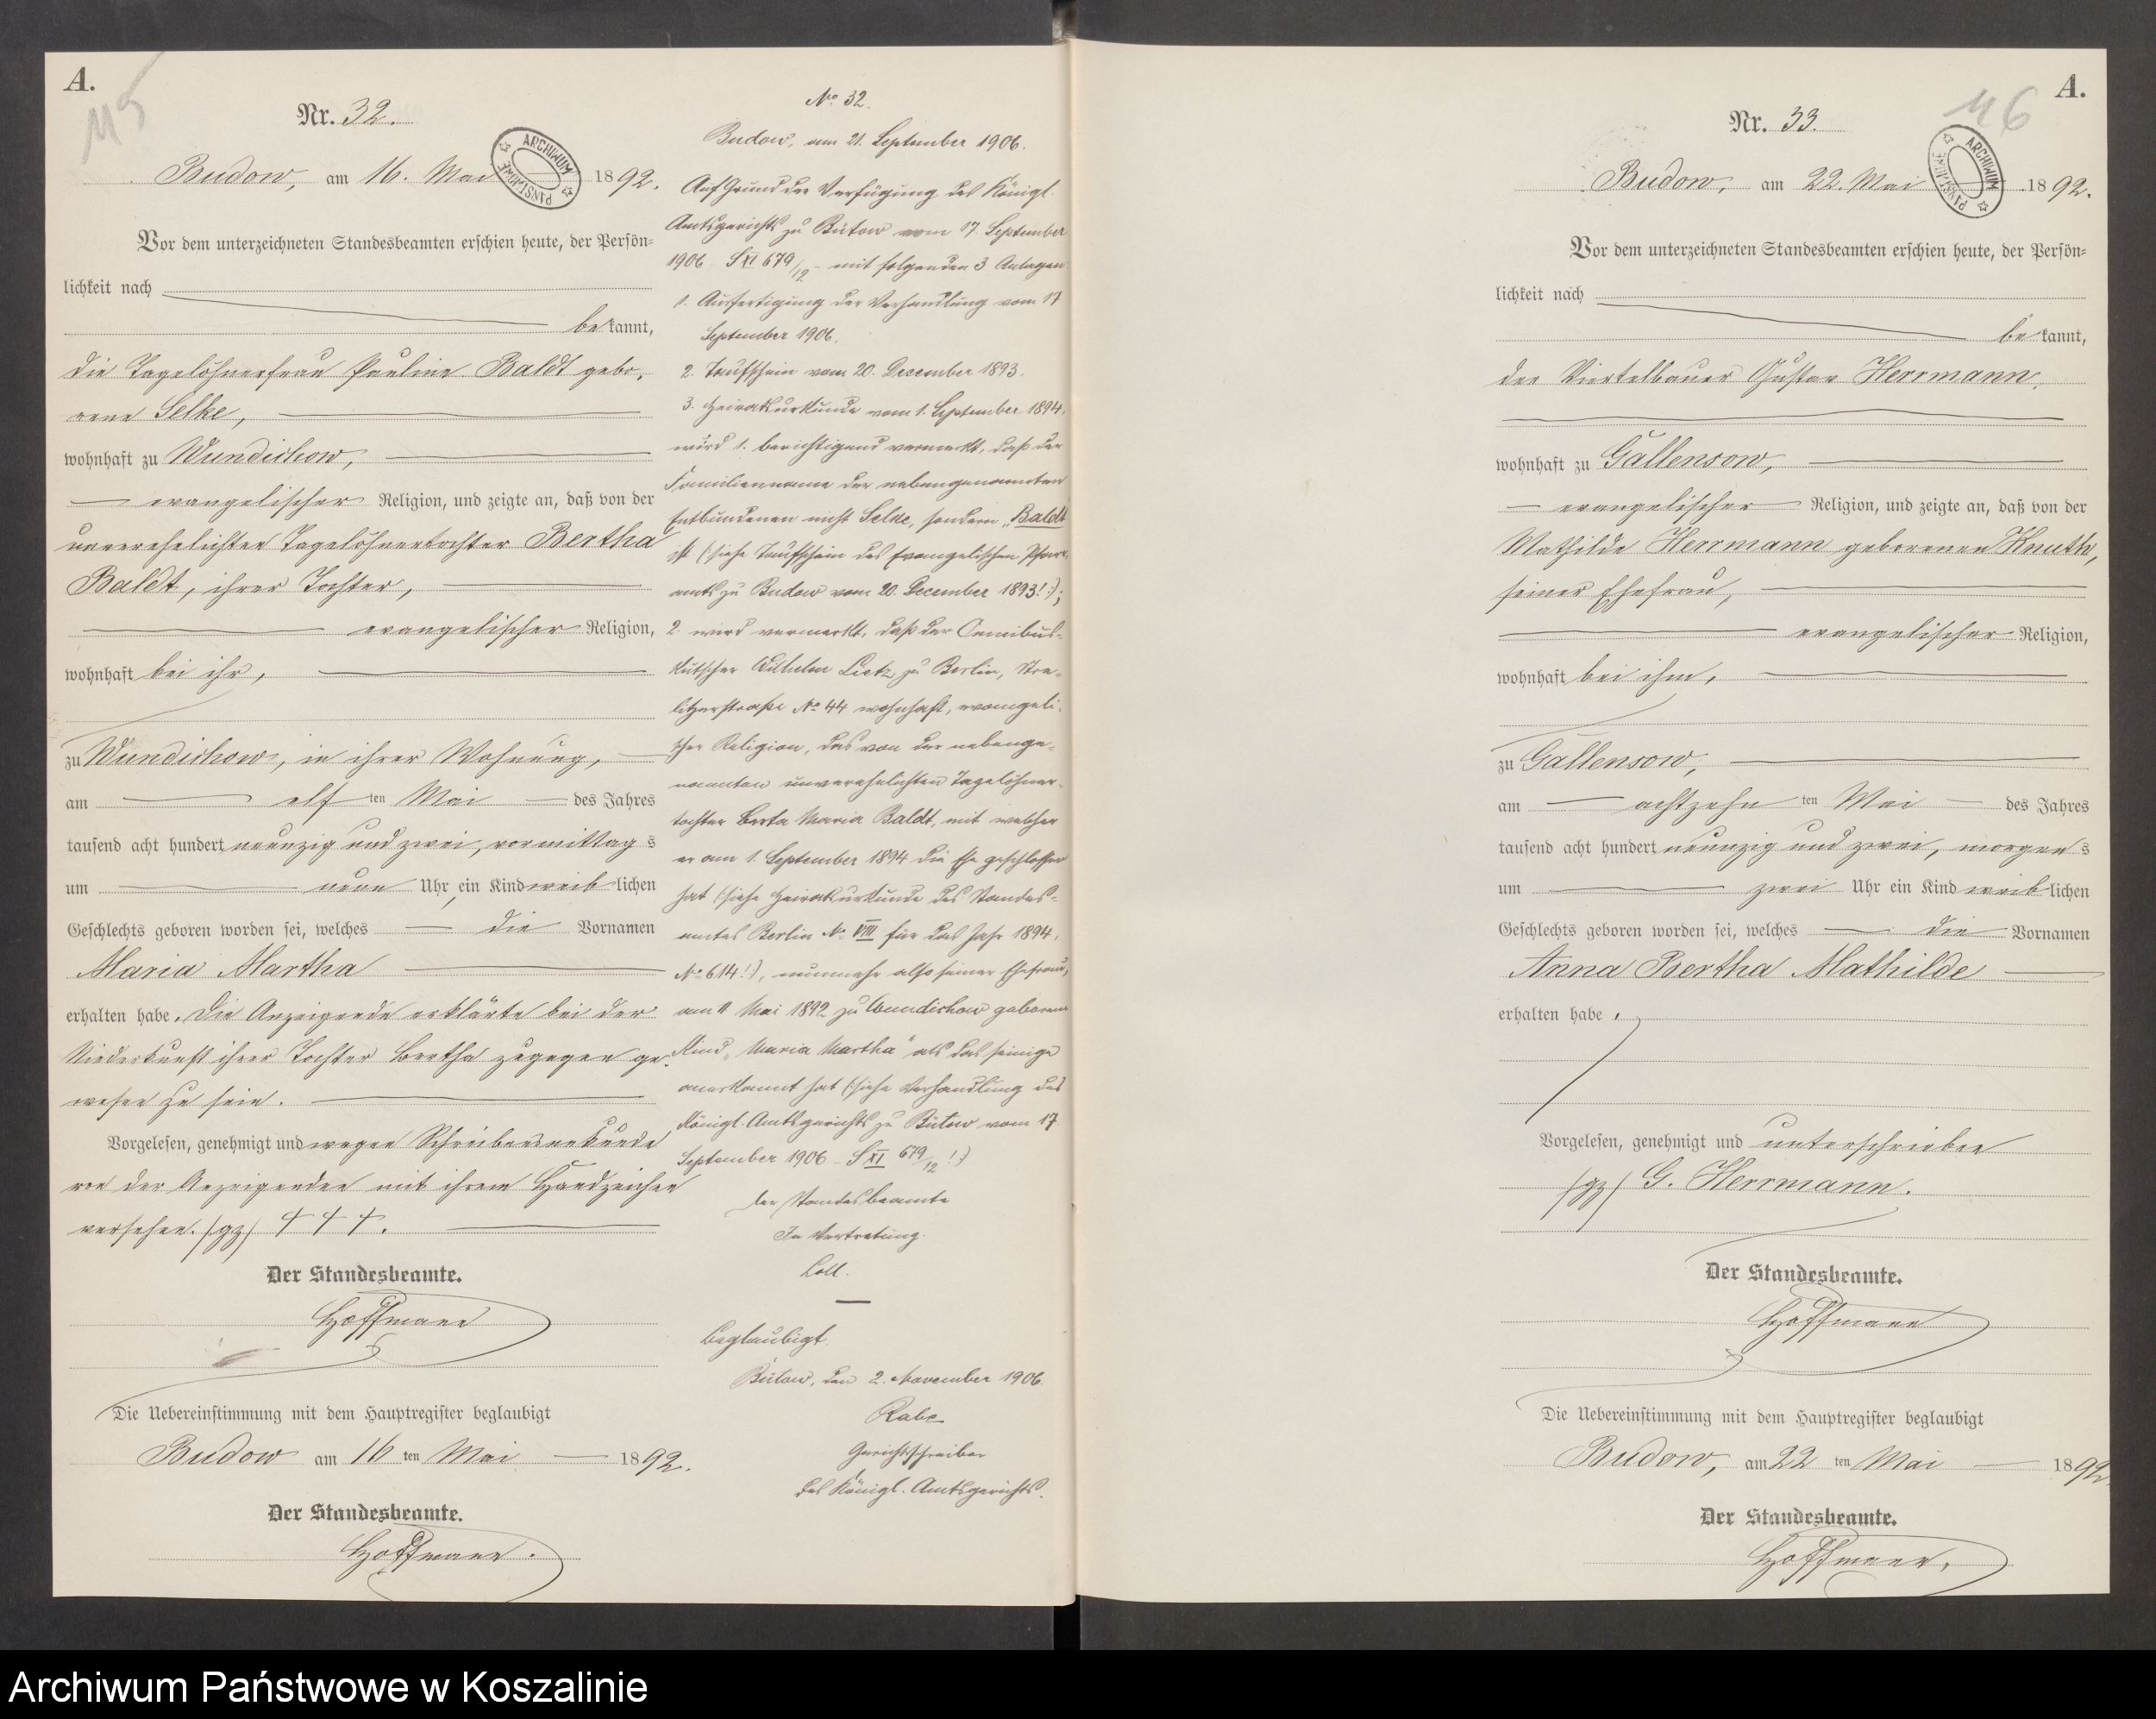 A.
115
Nr. 32.
Budow, am 16. Mai 1892.
ARCHIWUM PAŃSTWOWE
Vor dem unterzeichneten Standesbeamten erschien heute, der Persön=
lichkeit nach
bekannt,
die Tagelöhnerfrau Pauline Baldt gebo,
rene Selke,
wohnhaft zu Wundichow,
evangelischer Religion, und zeigte an, daß von der
unverehelichten Tagelöhnertochter Bertha
Baldt, ihrer Tochter,
evangelischer Religion,
wohnhaft bei ihr,
zu Wundichow, in ihrer Wohnung,
am elf ten Mai des Jahres
tausend acht hundert neunzig und zwei, vormittag s
um neun Uhr, ein Kind weiblichen
Geschlechts geboren worden sei, welches die Vornamen
Maria Martha
erhalten habe. Die Anzeigende erklärte bei der
Niederkunft ihrer Tochter Bertha zugegen ge-
wesen zu sein.
Vorgelesen, genehmigt und wegen Schreibensunkunde
von der Anzeigenden mit ihrem Handzeichen
versehen. (gz) † † †.
Der Standesbeamte.
Hoffmann
Die Uebereinstimmung mit dem Hauptregister beglaubigt
Budow am 16 ten Mai 1892.
Der Standesbeamte.
Hoffmann.
No 32.
Budow, am 21. September 1906.
Auf Grund der Verfügung des Königl.
Amtsgerichts zu Bütow vom 17. September
1906 S XI 679/12 - mit folgenden 3 Anlagen:
1. Ausfertigung der Verhandlung vom 17
September 1906.
2. Taufschein vom 20. December 1893.
3. Heiratsurkunde vom 1. September 1894.
wird 1. berichtigend vermerkt, daß der
Familienname der nebengenannten
Entbundenen nicht Selke, sondern „Baldt"
ist (: siehe Taufschein des Evangelischen Pfarr-
amts zu Budow vom 20. December 1893! :);
2. wird vermerkt, daß der Omnibus-
kutscher Wilhelm Lietz zu Berlin, Stre-
litzerstraße No 44 wohnhaft, evangeli-
scher Religion, das von der nebenge-
nannten unverehelichten Tagelöhner-
tochter Berta Maria Baldt, mit welcher
er am 1. September 1894 die Ehe geschlossen
hat (: siehe Heiratsurkunde des Standes-
amtes Berlin No VIII für das Jahr 1894,
No 614! :), nunmehr also seiner Ehefrau,
am 11 Mai 1892 zu Wundichow geborene
Kind „Maria Martha" als das seinige
anerkannt hat (: siehe Verhandlung des
Königl. Amtsgerichts zu Bütow vom 17.
September 1906 - S XI 679/12 ! :)
Der Standesbeamte
In Vertretung.
Beglaubigt.
Bütow, den 2. November 1906.
Rabe
Gerichtsschreiber
des Königl. Amtsgerichts.
A.
116
Nr. 33.
Budow, am 22. Mai 1892.
ARCHIWUM PAŃSTWOWE
Vor dem unterzeichneten Standesbeamten erschien heute, der Persön=
lichkeit nach
bekannt,
der Viertelbauer Gustav Herrmann,
wohnhaft zu Gallensow,
evangelischer Religion, und zeigte an, daß von der
Mathilde Herrmann geborenen Knuth,
seiner Ehefrau,
evangelischer Religion,
wohnhaft bei ihm,
zu Gallensow,
am achtzehn ten Mai des Jahres
tausend acht hundert neunzig und zwei, morgen s
um zwei Uhr ein Kind weiblichen
Geschlechts geboren worden sei, welches die Vornamen
Anna Bertha Mathilde
erhalten habe.
Vorgelesen, genehmigt und unterschrieben
(gz) G. Herrmann.
Der Standesbeamte.
Hoffmann
Die Uebereinstimmung mit dem Hauptregister beglaubigt
Budow, am 22 ten Mai 1892.
Der Standesbeamte.
Hoffmann.
Archiwum Państwowe w Koszalinie